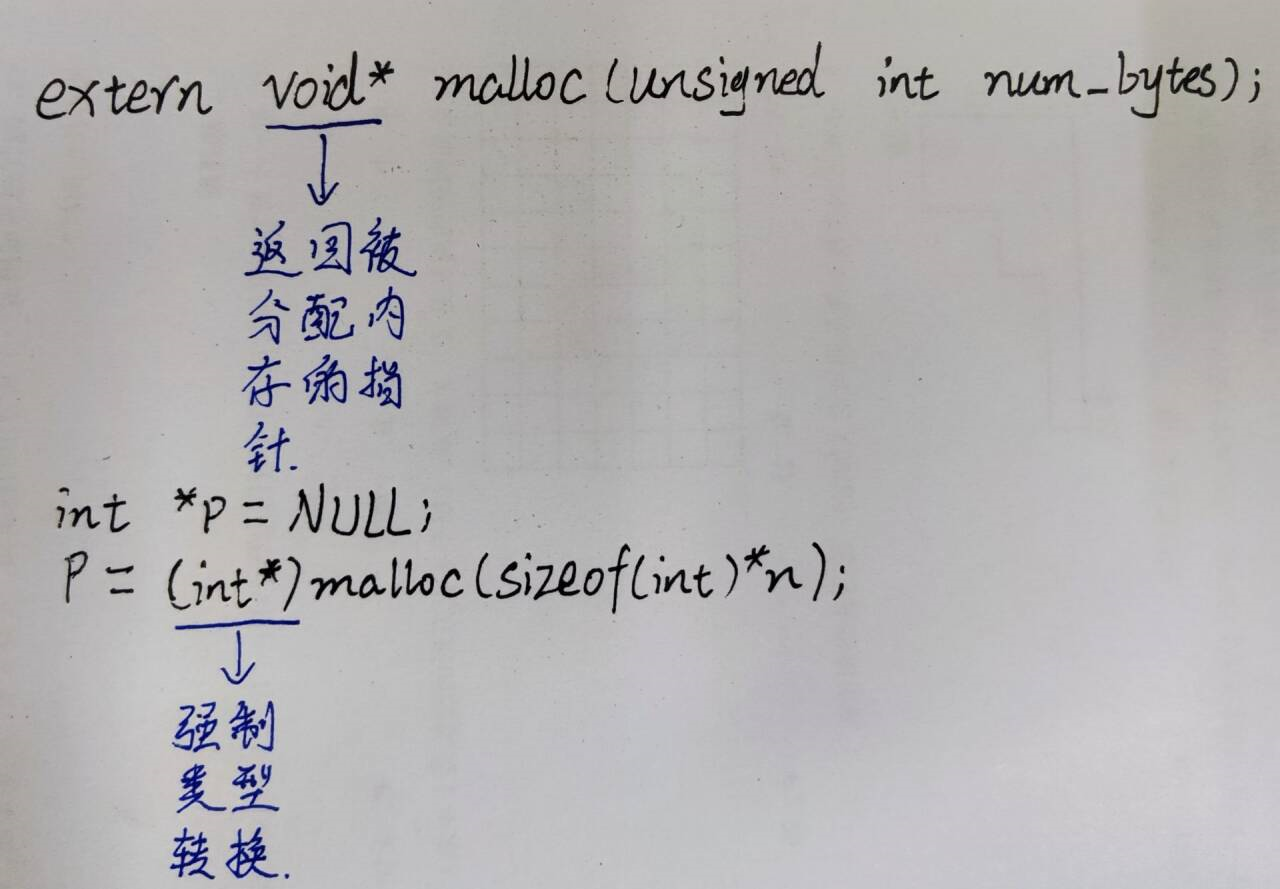 extern void* malloc(unsigned int num_bytes);
返回被
分配内
存的指
针.
int *p = NULL;
P = (int*)malloc(sizeof(int)*n);
强制
类型
转换.